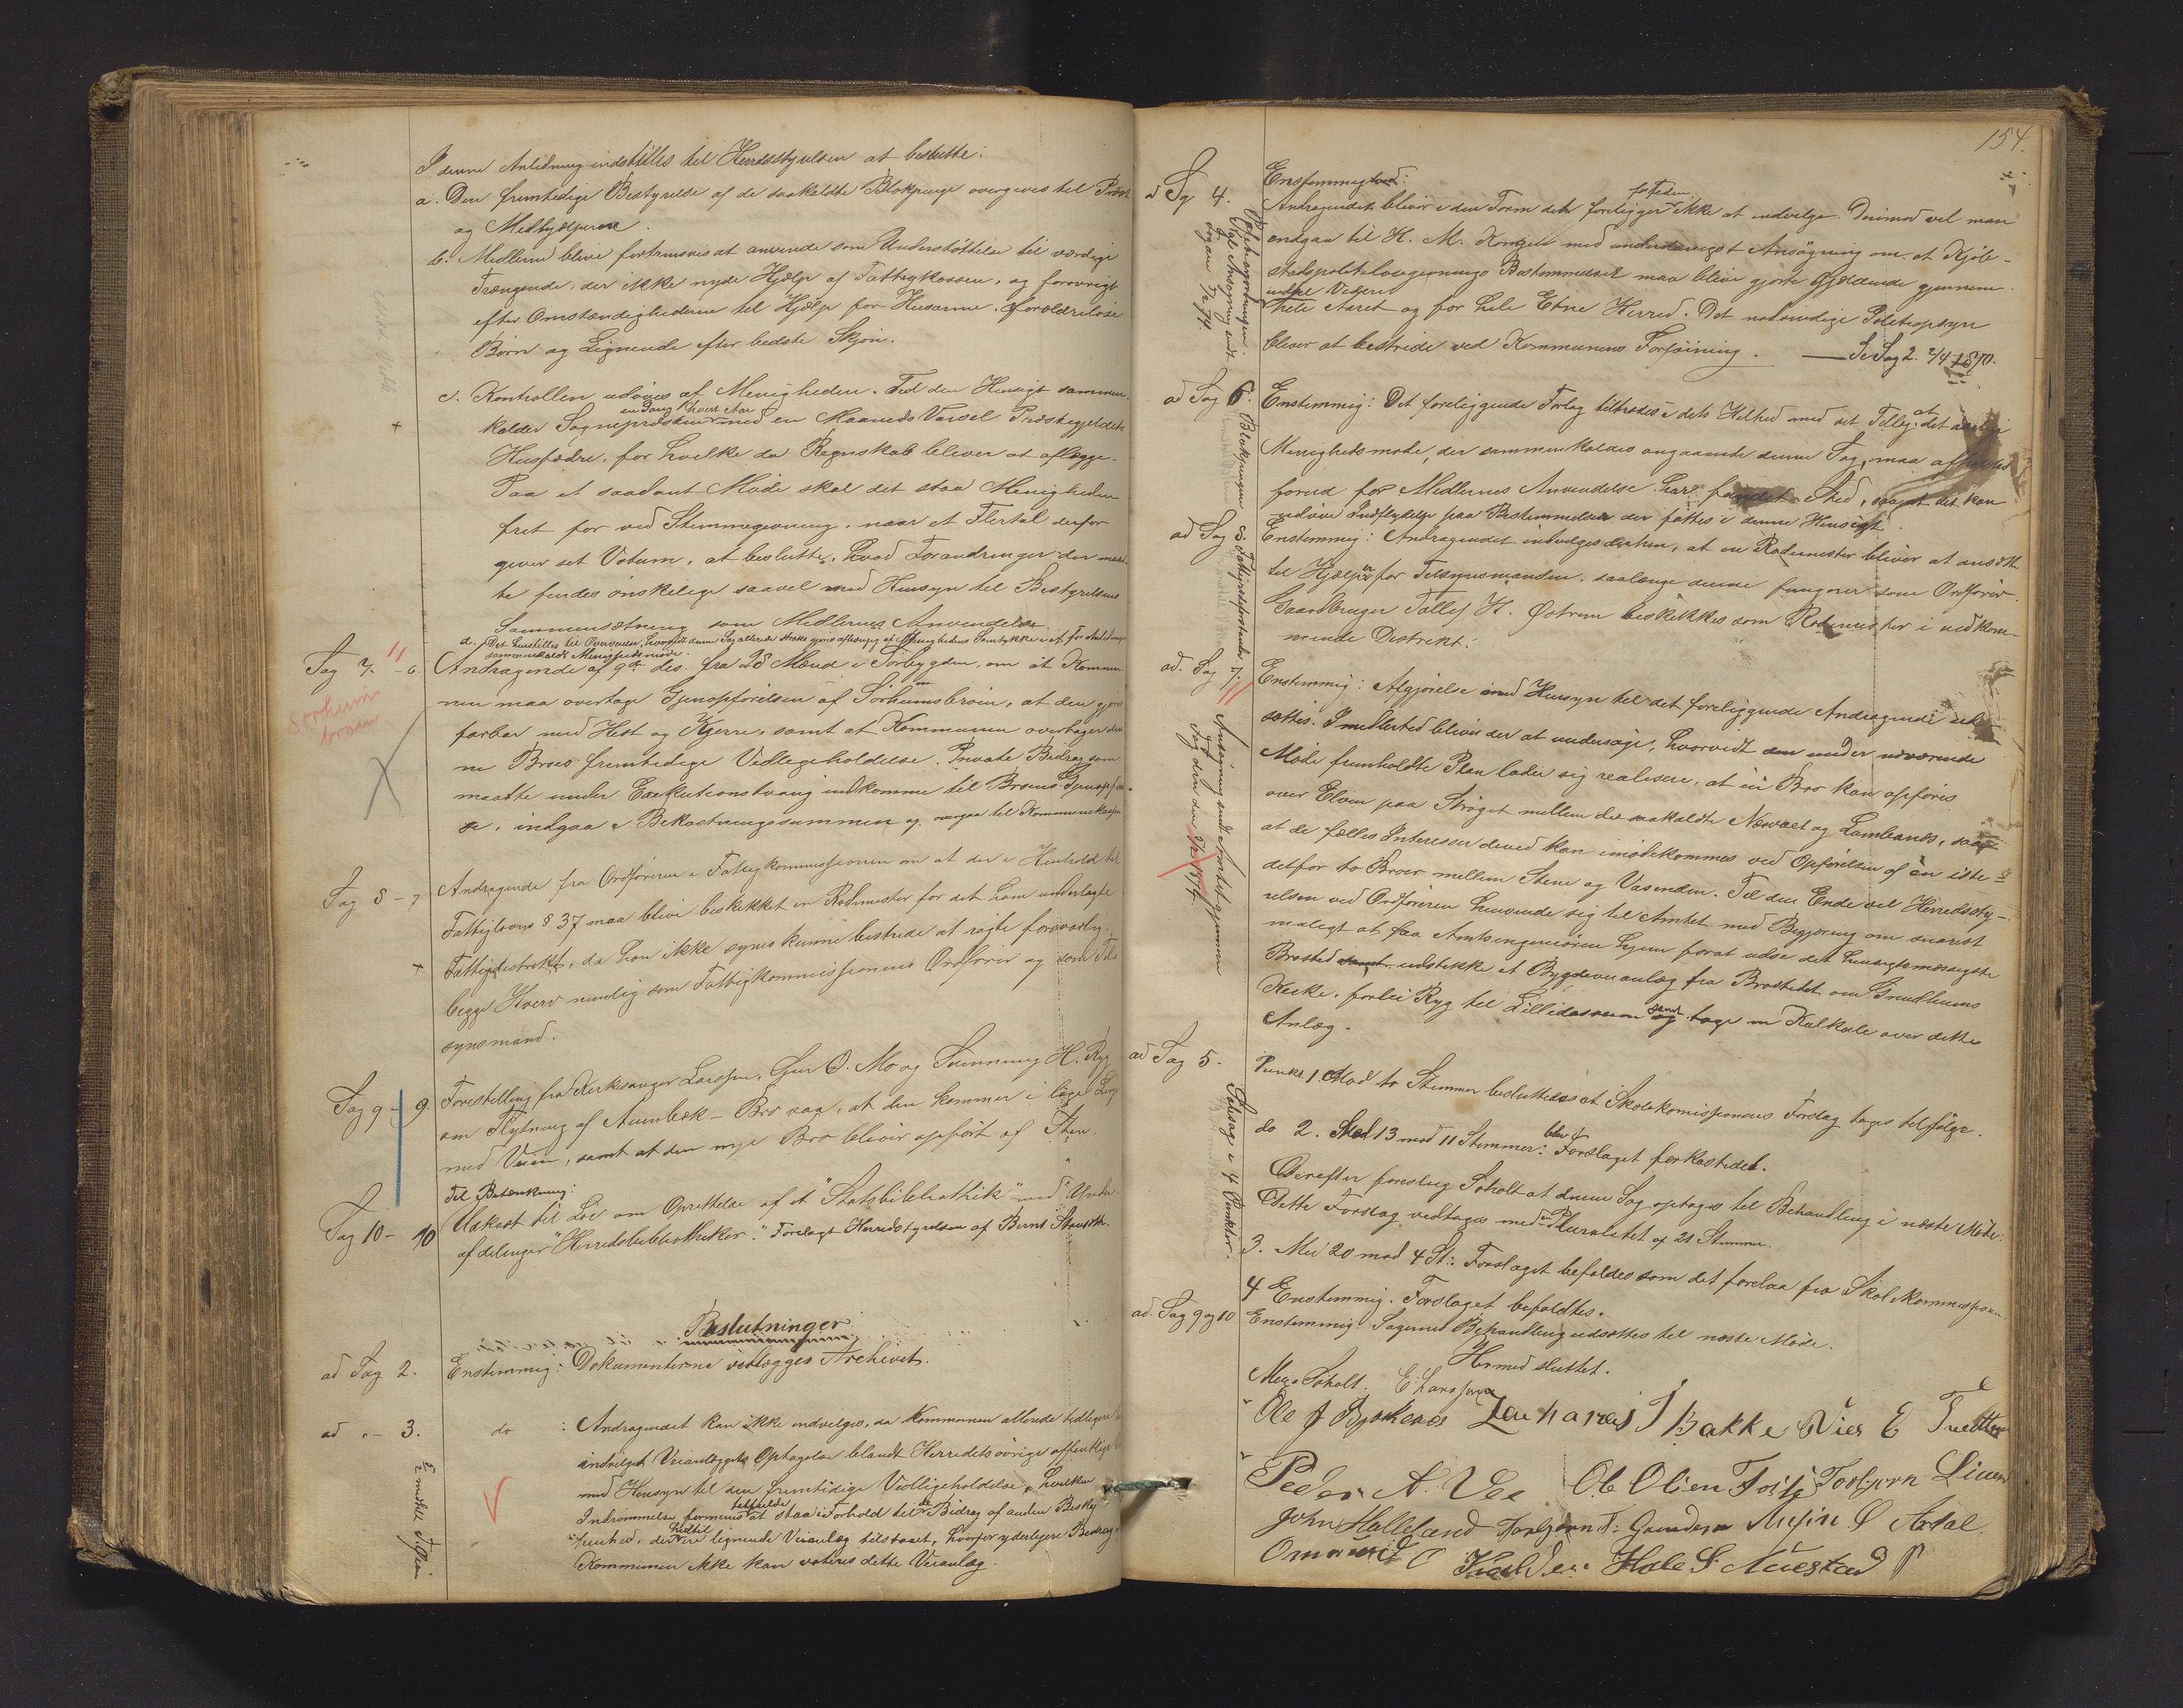 I denne Anledning indstilles til Herredsstyrelsen at beslutte:
a. Den fremtidige Bestyrelse af de saakaldte Blokpenge overgives til Præst
og Medhjælperne.
b. Midlerne blive fortrinsvis at anvende som Understøttelse til værdige
Trængende, der ikke nyde Hjælp af Fattigkassen, og forøvrigt
efter Omstændighederne til Hjælp for Husarme, forældreløse
Børn og Lignende efter bedste Skjøn.
c. Kontrollen udøves af Menigheden. Til den Hensigt sammen-
en Gang hvert Aar
kalder Sognepræsten med en Maaneds Varsel Præstegjeldets
Husfædre, for hvilke da Regnskab bliver at aflægge.
Paa et saadant Møde skal det staa Menigheden
frit for ved Stemmegivning, naar et Flertal derfor
giver sit Votum, at beslutte, hvad Forandringer der maat-
te findes ønskelige saavel med Hensyn til Bestyrelsens
Sammensætning som Midlernes Anvendelse.
d. Det henstilles til Overveielse, hvorvidt denne Sag allerede strax gjøres afhængig af Menighedens Samtykke i et for Anledningen
sammenkaldt Menighedsmøde.
Sag 7. 11 - 6. Andragende af 9de ds. fra 28 Mænd i Sørbygden, om at Kommu-
nen maa overtage Gjenopførelsen af Sørheimsbroen, at den gjøres
Sørheim
broen
farbar med Hest og Kjerre, samt at Kommunen overtager den-
ne Broes fremtidige Vedligeholdelse. Private Bidrag som
maatte under Exekutionstvang indkomme til Broens Gjenopførel-
se, indgaa i Bekostningssummen og overgaa til Kommunekassen
Sag 8 - 7 Andragende fra Ordføreren i Fattigkommissionen om at der i Henhold til
Fattiglovens § 37 maa blive beskikket en Rodemester for det ham underlagte
Fattigdistrikt, da han ikke synes kunne bestride at røgte forsvarlig
begge Hverv nemlig som Fattigkommissionens Ordfører og som Til-
synsmand.
Sag 9 - 9. Forestilling fra Kirkesanger Larssen, Gur O. Mo og Sæmunng H. Ryg
om Flytning af Aurnbæk-Bro saa, at den kommer i lige Linje
med Veien, samt at den nye Bro bliver opført af Sten.
Til Betænkning:
Sag 10 - 10 Udkast til Lov om Oprettelse af et "Statsbibliothek" med Under-
afdelinger "Herredsbibliotheker." Forelagt Herredsstyrelsen af Bernt
Beslutninger
ad Sag 2. Enstemmig: Dokumenterne vedlægges Archivet.
ad " 3. do : Andragendet kan ikke indvilges, da Kommunen allerede tidligere
indvilget Veianlæggets Optagelse blandt Herredets øvrige offentlige
med Hensyn til den fremtidige Vedligeholdelse, hvilken
tilfulde
Indrømmelse formenes at staa i Forhold til de Bidrag af anden Beskaf-
hertil
fenhed, der ere lignende Veianlæg tilstaaet, hvorfor yderligere Bidrag af
Kommunen ikke kan voteres dette Veianlæg.
154.
ad Sag 4. Enstemmig:
for Tiden
Andragendet bliver i den Form det foreligger ikke at indvilge. Derimod vil man
indgaa til H. M. Kongen med underdanigst Ansøgning om at Kjøb-
stadspolitilovgivnings Bestemmelser maa blive gjorte gjældende gjennem
indtil Videre
hele Aaret og for hele Etne Herred. Det nødvendige Politiopsyn
bliver at bestride ved Kommunens Forføining. — Se Sag 2. 2/4 1870.
ad Sag 6. Enstemmig: Det foreliggende Forlag tiltrædes i dets Helhed med det Tillæg: at det aarlige
Menighedsmøde, der sammenkaldes angaaende denne Sag, maa afholdes
forud for Midlernes Anvendelse har fundet Sted, saa at det kan
udøve Indflydelse paa Bestemmelser der fattes i denne Hensigt.
ad Sag 8 Enstemmig: Andragendet indvilges derhen, at en Rodemester bliver at ansætte
til Hjælper for Tilsynsmanden, saalænge denne fungerer som Ordfører.
Gaardbruger Tollef H. Østrem beskikkes som Rodemester i vedkom-
mende Distrikt.
ad. Sag 7. 11 Enstemmig: Afgjørelse med Hensyn til det foreliggende Andragende ud-
sættes. Imellertid bliver der at undersøge, hvorvidt den under nærværende
Møde fremholdte Plan lader sig realisere, at en Bro kan opføres
over Elven paa Strøget mellem det saakaldte Næväet og Lambanes, saa
at de fælles Interesser derved kan imødekommes ved Opførelsen af en iste-
detfor to Broer mellem Stene og Vasenden. Til den Ende vil Herredssty-
relsen ved Ordføreren henvende sig til Amtet med Begjæring om snarest
muligt at faa Amtsingeniøren hjem forat udse det hensigtsmæssigste
Brosted samt udstikke et Bygdeveianlæg fra Brostedet om Grindheims
Kirke, forbi Ryg til Lillidasveien samt tage en Kalkule over dette
Anlæg.
ad Sag 5. Punkt. 1. Mod to Stemmer besluttedes at Skolekomissionens Forslag tages tilfølge.
do 2. Med 13 mod 11 Stemmer: blev Forslaget forkastedet.
Derefter foreslog Søholt at denne Sag optages til Behandling i næste Møde:
Dette Forslag vedtages med Pluralitet af 21 Stemmer.
3. Med 20 mod 4 St: Forslaget befaldes som det forelaa fra Skolekommissionen.
4 Enstemmig. Forslaget befaldtes.
ad. Sag 9 og 10 Enstemmig: Sagernes Behandling udsættes til næste Møde.
Hermed sluttet.
Søholt. E. Larssen
Ole J Bjørkenes Zacharias J Bakke Nils E Tvedten
Peder A. Vee Ole Olsen Torbjørn
John Halleland Torbjørn T: Grindem